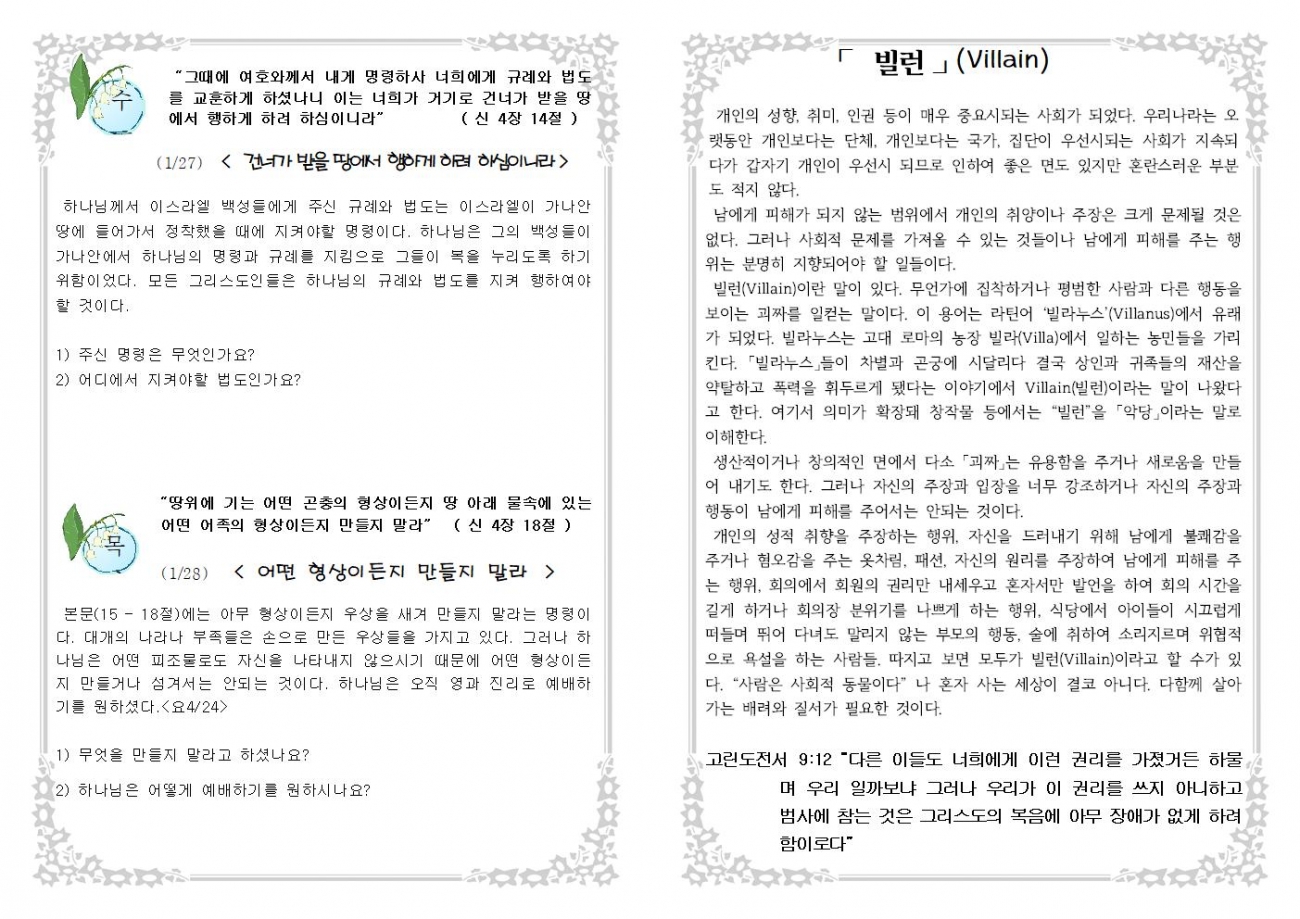 수
“그때에 여호와께서 내게 명령하사 너희에게 규례와 법도
를 교훈하게 하셨나니 이는 너희가 거기로 건너가 받을 땅
에서 행하게 하려 하심이니라” ( 신 4장 14절 )
(1/27) < 건너가 받을 땅에서 행하게 하려 하심이니라 >
하나님께서 이스라엘 백성들에게 주신 규례와 법도는 이스라엘이 가나안
땅에 들어가서 정착했을 때에 지켜야할 명령이다. 하나님은 그의 백성들이
가나안에서 하나님의 명령과 규례를 지킴으로 그들이 복을 누리도록 하기
위함이었다. 모든 그리스도인들은 하나님의 규례와 법도를 지켜 행하여야
할 것이다.
1) 주신 명령은 무엇인가요?
2) 어디에서 지켜야할 법도인가요?
목
“땅위에 기는 어떤 곤충의 형상이든지 땅 아래 물속에 있는
어떤 어족의 형상이든지 만들지 말라” ( 신 4장 18절 )
(1/28) < 어떤 형상이든지 만들지 말라 >
본문(15 – 18절)에는 아무 형상이든지 우상을 새겨 만들지 말라는 명령이
다. 대개의 나라나 부족들은 손으로 만든 우상들을 가지고 있다. 그러나 하
나님은 어떤 피조물로도 자신을 나타내지 않으시기 때문에 어떤 형상이든
지 만들거나 섬겨서는 안되는 것이다. 하나님은 오직 영과 진리로 예배하
기를 원하셨다.<요4/24>
1) 무엇을 만들지 말라고 하셨나요?
2) 하나님은 어떻게 예배하기를 원하시나요?
「 빌런 」(Villain)
개인의 성향, 취미, 인권 등이 매우 중요시되는 사회가 되었다. 우리나라는 오
랫동안 개인보다는 단체, 개인보다는 국가, 집단이 우선시되는 사회가 지속되
다가 갑자기 개인이 우선시 되므로 인하여 좋은 면도 있지만 혼란스러운 부분
도 적지 않다.
남에게 피해가 되지 않는 범위에서 개인의 취양이나 주장은 크게 문제될 것은
없다. 그러나 사회적 문제를 가져올 수 있는 것들이나 남에게 피해를 주는 행
위는 분명히 지향되어야 할 일들이다.
빌런(Villain)이란 말이 있다. 무언가에 집착하거나 평범한 사람과 다른 행동을
보이는 괴짜를 일컫는 말이다. 이 용어는 라틴어 ‘빌라누스’(Villanus)에서 유래
가 되었다. 빌라누스는 고대 로마의 농장 빌라(Villa)에서 일하는 농민들을 가리
킨다. 「빌라누스」들이 차별과 곤궁에 시달리다 결국 상인과 귀족들의 재산을
약탈하고 폭력을 휘두르게 됐다는 이야기에서 Villain(빌런)이라는 말이 나왔다
고 한다. 여기서 의미가 확장돼 창작물 등에서는 “빌런”을 「악당」이라는 말로
이해한다.
생산적이거나 창의적인 면에서 다소 「괴짜」는 유용함을 주거나 새로움을 만들
어 내기도 한다. 그러나 자신의 주장과 입장을 너무 강조하거나 자신의 주장과
행동이 남에게 피해를 주어서는 안되는 것이다.
개인의 성적 취향을 주장하는 행위, 자신을 드러내기 위해 남에게 불쾌감을
주거나 혐오감을 주는 옷차림, 패션, 자신의 원리를 주장하여 남에게 피해를 주
는 행위, 회의에서 회원의 권리만 내세우고 혼자서만 발언을 하여 회의 시간을
길게 하거나 회의장 분위기를 나쁘게 하는 행위, 식당에서 아이들이 시끄럽게
떠들며 뛰어 다녀도 말리지 않는 부모의 행동, 술에 취하여 소리지르며 위협적
으로 욕설을 하는 사람들. 따지고 보면 모두가 빌런(Villain)이라고 할 수가 있
다. “사람은 사회적 동물이다” 나 혼자 사는 세상이 결코 아니다. 다함께 살아
가는 배려와 질서가 필요한 것이다.
고린도전서 9:12 “다른 이들도 너희에게 이런 권리를 가졌거든 하물
며 우리 일까보냐 그러나 우리가 이 권리를 쓰지 아니하고
범사에 참는 것은 그리스도의 복음에 아무 장애가 없게 하려
함이로다”